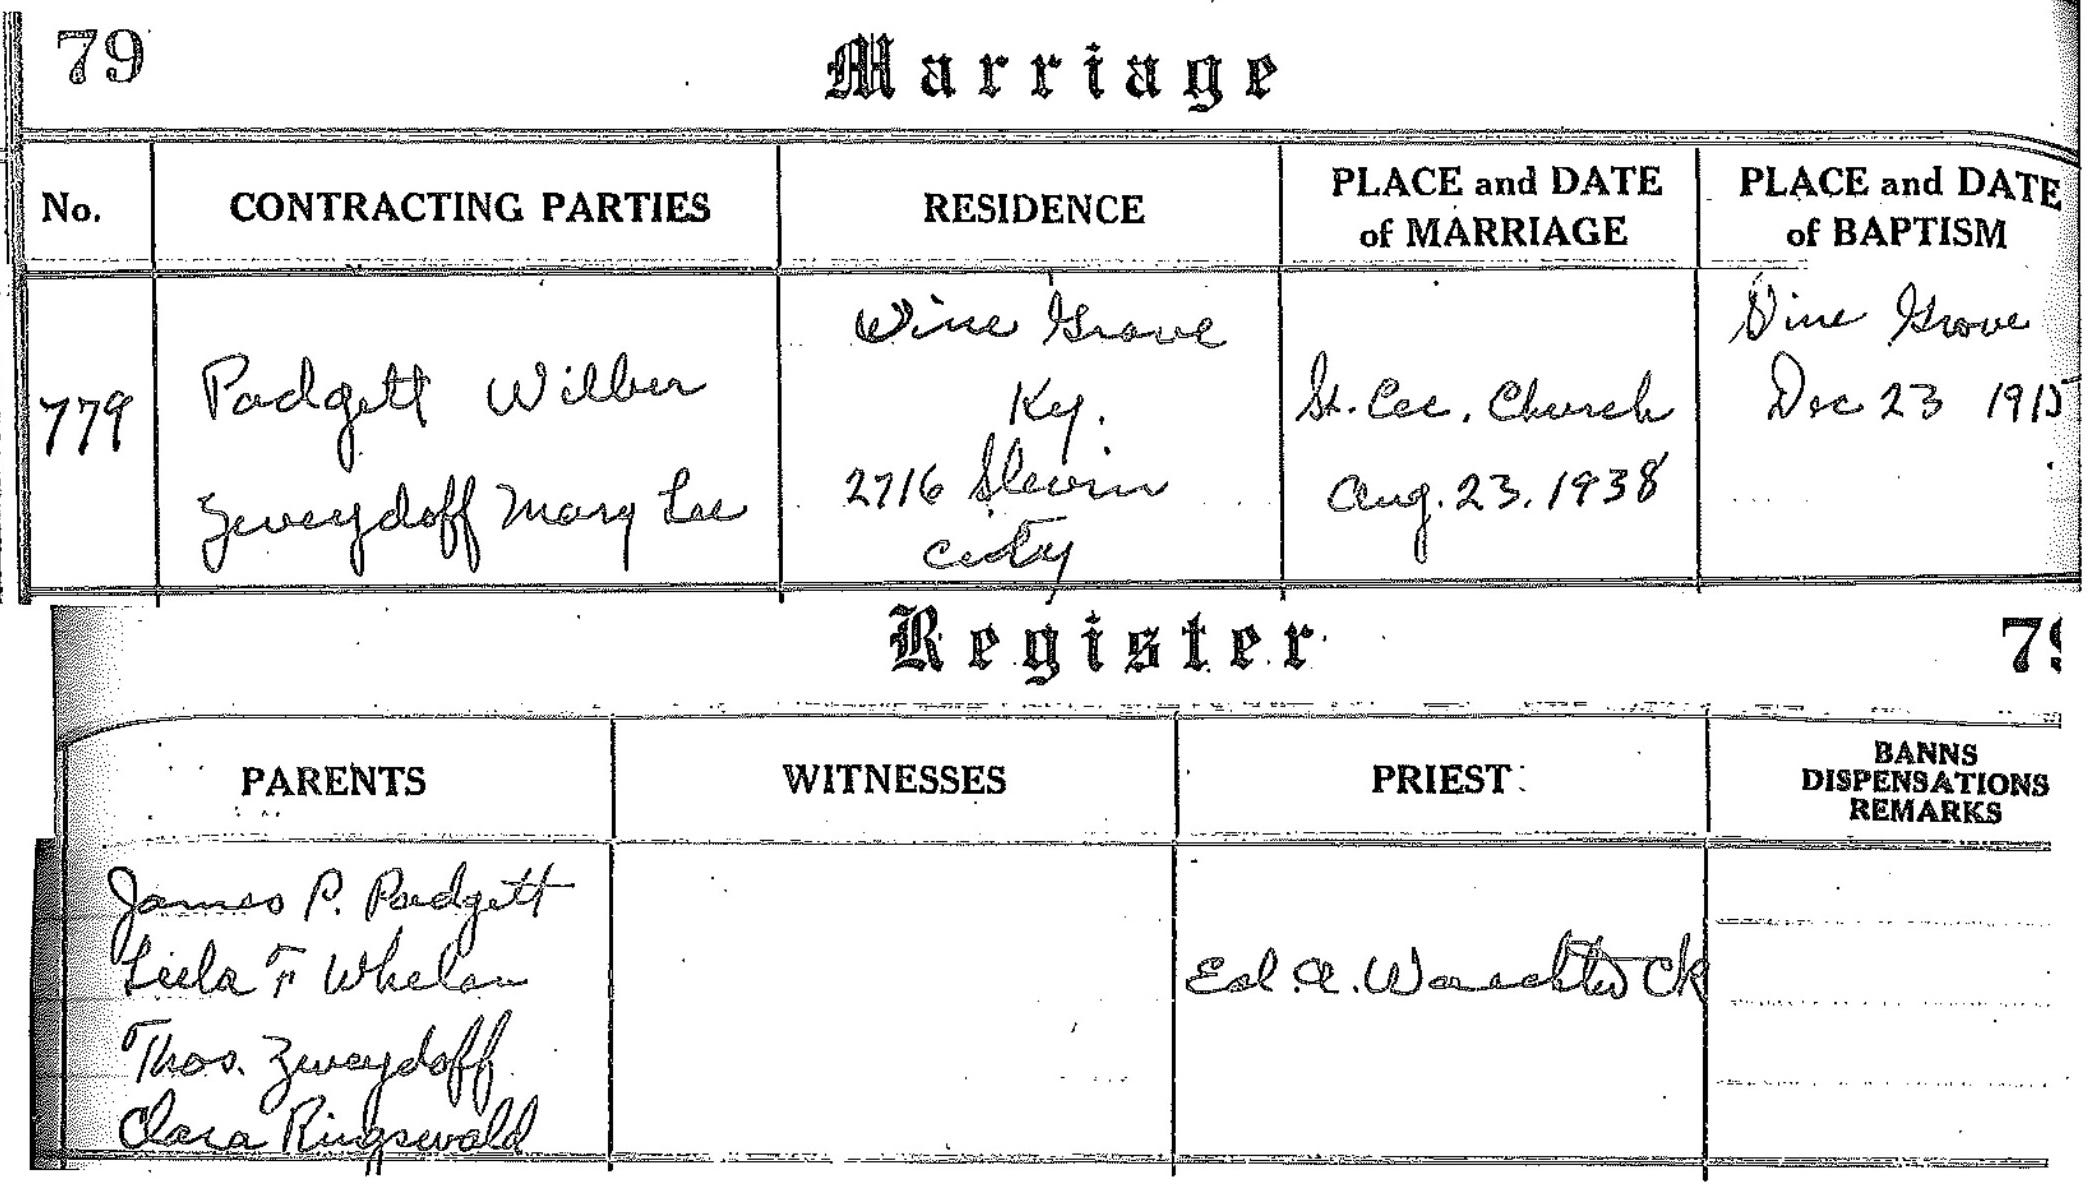 79
Marriage
No.
CONTRACTING PARTIES
RESIDENCE
PLACE and DATE
of MARRIAGE
PLACE and DATE
of BAPTISM
779
Padgett Wilber
Zweydoff Mary Lee
Vine Grove
Ky.
2716 Slevin
City
St. Cec. Church
Aug. 23. 1938
Vine Grove
Dec 23 1915
Register
79
PARENTS
WITNESSES
PRIEST
BANNS
DISPENSATIONS
REMARKS
James P. Padgett
Lula F Whelan
Thos. Zweydoff
Clara Ringswald
Ed. A.